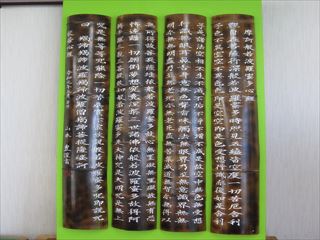 摩訶般若波羅蜜多心経
観自在菩薩行深般若波羅蜜多時照見五蘊皆空度一切苦厄舎利
子色不異空空不異色色即是空空即是色受想行識亦復如是舎利
子是諸法空相不生不滅不垢不浄不増不減是故空中無色無受想
行識無眼耳鼻舌身意無色声香味触法無眼界乃至無意識界無無
明亦無無明尽乃至無老死亦無老死尽無苦集滅道無智亦無得以
無所得故菩提薩埵依般若波羅蜜多故心無罣礙無罣礙故無有恐
怖遠離一切顛倒夢想究竟涅槃三世諸仏依般若波羅蜜多故得阿
耨多羅三藐三菩提故知般若波羅蜜多是大神呪是大明呪是無上
呪是無等等呪能除一切苦真実不虚故説般若波羅蜜多呪即説呪
曰 羯諦羯諦波羅羯諦波羅僧羯諦菩提薩婆訶
般若心経 山本